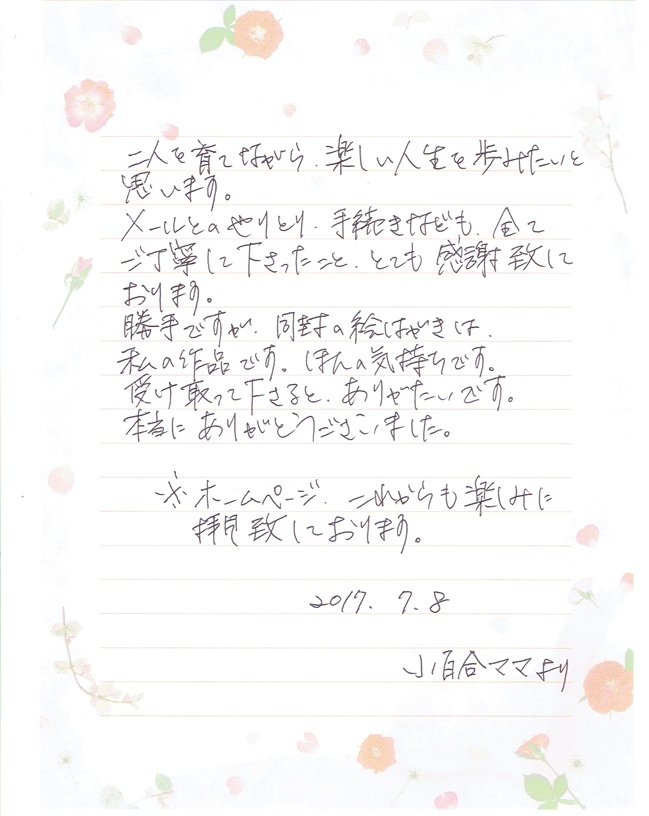 二人を育てながら、楽しい人生を歩みたいと
思います。
メールとのやりとり、手続きなども、全て
ご丁寧して下さったこと、とても感謝致して
おります。
勝手ですが、同封の絵はがきは、
私の作品です。ほんの気持ちです。
受け取って下さると、ありがたいです。
本当にありがとうございました。
※ホームページ、これからも楽しみに
拝見致しております。
2017. 7. 8
小百合ママより